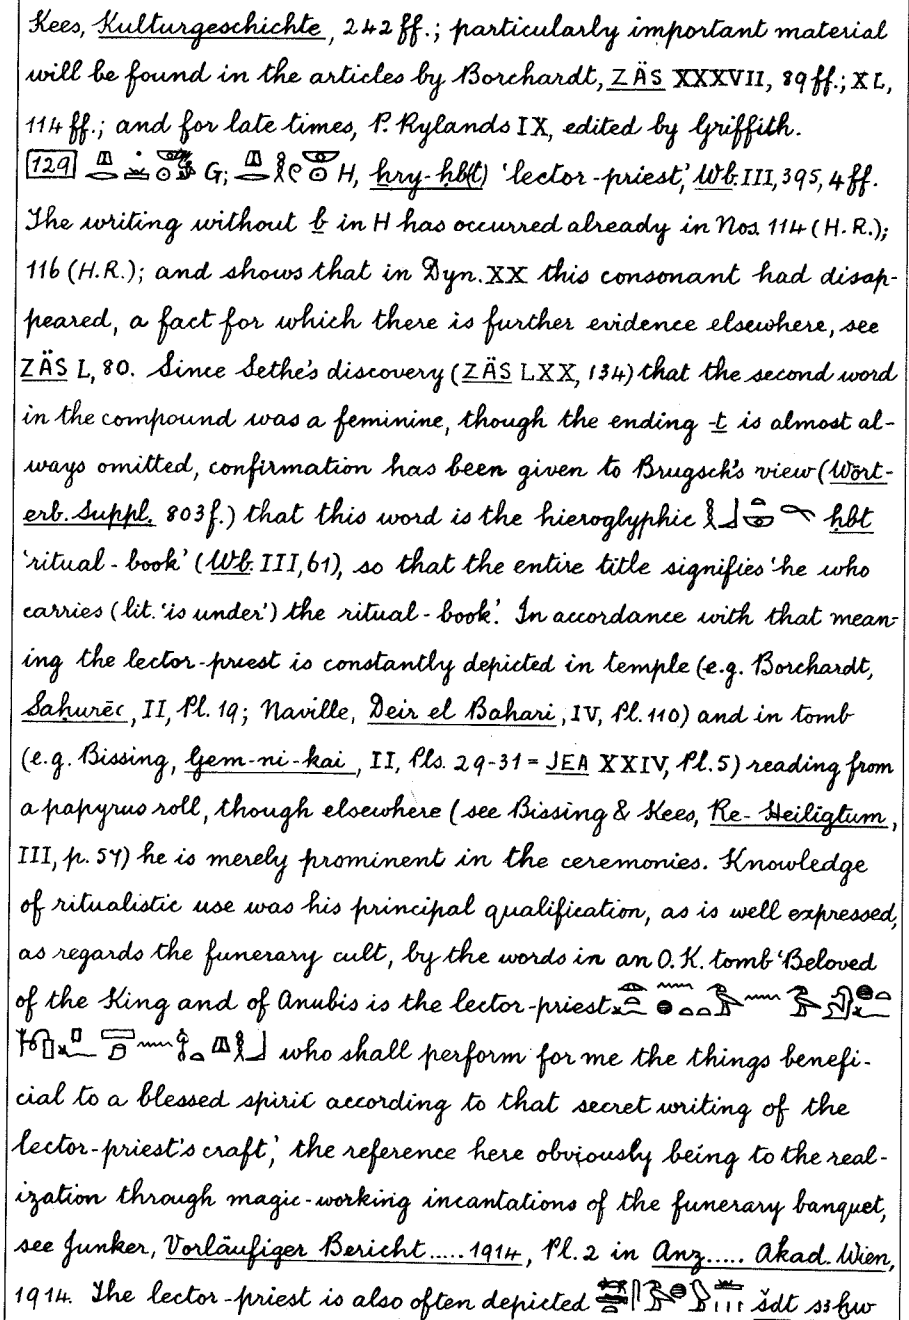 Kees, Kulturgeschichte, 242 ff.; particularly important material
will be found in the articles by Borchardt, ZÄS XXXVII, 89 ff.; XL,
114 ff.; and for late times, P. Rylands IX, edited by Griffith.
129 G; H, ẖry-ḥb(t) 'lector-priest', Wb. III, 395, 4 ff.
The writing without b in H has occurred already in Nos. 114 (H.R.);
116 (H.R.); and shows that in Dyn. XX this consonant had disap-
peared, a fact for which there is further evidence elsewhere, see
ZÄS L, 80. Since Sethe's discovery (ZÄS LXX, 134) that the second word
in the compound was a feminine, though the ending -t is almost al-
ways omitted, confirmation has been given to Brugsch's view (Wört-
erb. Suppl. 803 f.) that this word is the hieroglyphic ḥbt
'ritual-book' (Wb. III, 61), so that the entire title signifies 'he who
carries (lit. 'is under') the ritual-book'. In accordance with that mean-
ing the lector-priest is constantly depicted in temple (e.g. Borchardt,
Saḥurēc, II, Pl. 19; Naville, Deir el Bahari, IV, Pl. 110) and in tomb
(e.g. Bissing, Gem-ni-kai, II, Pls. 29-31 = JEA XXIV, Pl. 5) reading from
a papyrus roll, though elsewhere (see Bissing & Kees, Re-Heiligtum,
III, p. 57) he is merely prominent in the ceremonies. Knowledge
of ritualistic use was his principal qualification, as is well expressed,
as regards the funerary cult, by the words in an O.K. tomb 'Beloved
of the King and of Anubis is the lector-priest
who shall perform for me the things benefi-
cial to a blessed spirit according to that secret writing of the
lector-priest's craft', the reference here obviously being to the real-
ization through magic-working incantations of the funerary banquet,
see Junker, Vorläufiger Bericht ..... 1914, Pl. 2 in Anz..... Akad. Wien,
1914. The lector-priest is also often depicted šdt sꜣḫw